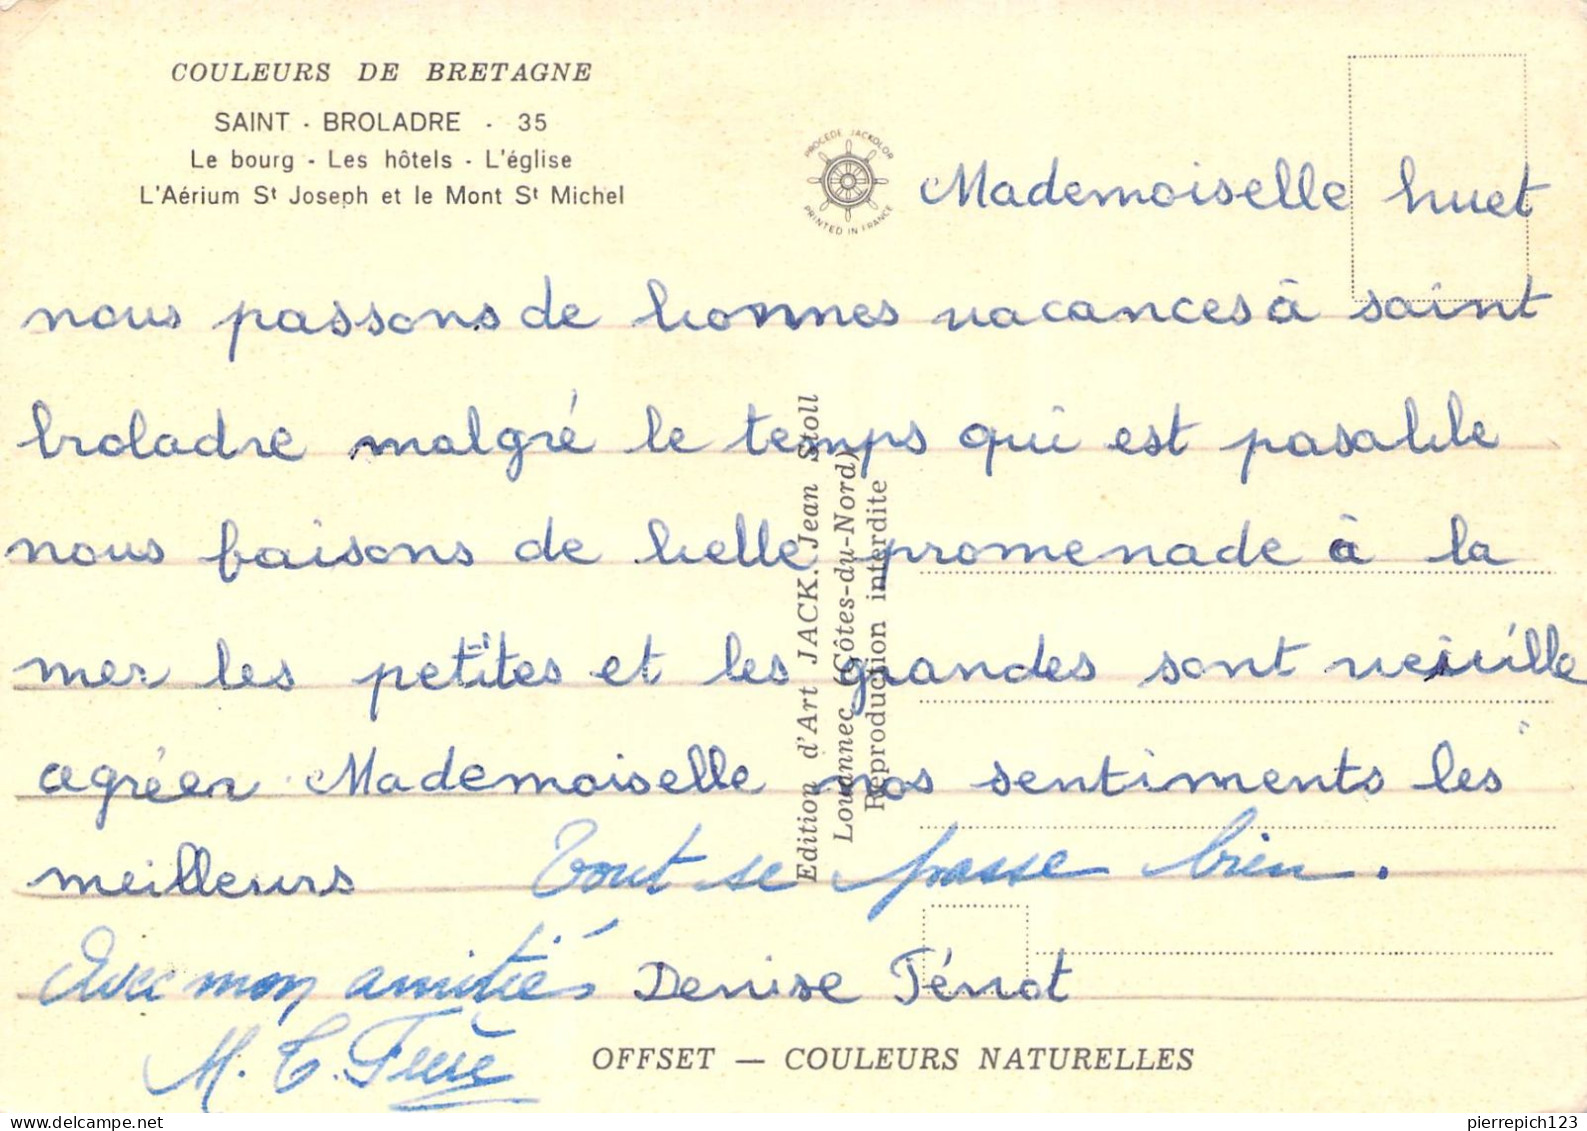 COULEURS DE BRETAGNE
SAINT - BROLADRE - 35
Le bourg - Les hôtels - L'église
L'Aérium St Joseph et le Mont St Michel
PROCÉDÉ JACKOLOR
PRINTED IN FRANCE
Mademoiselle huet
nous passons de bonnes vacances à saint
broladre malgré le temps qui est pasable
nous faisons de belle promenade à la
mer les petites et les grandes sont
agréer Mademoiselle nos sentiments les
meilleurs
Tout se passe bien.
Avec mon amitié
Denise Ténot
M. C.
Edition d'Art JACK. Jean Stoll
Louannec (Côtes-du-Nord)
Reproduction interdite
OFFSET — COULEURS NATURELLES
www.delcampe.net
pierrepich123